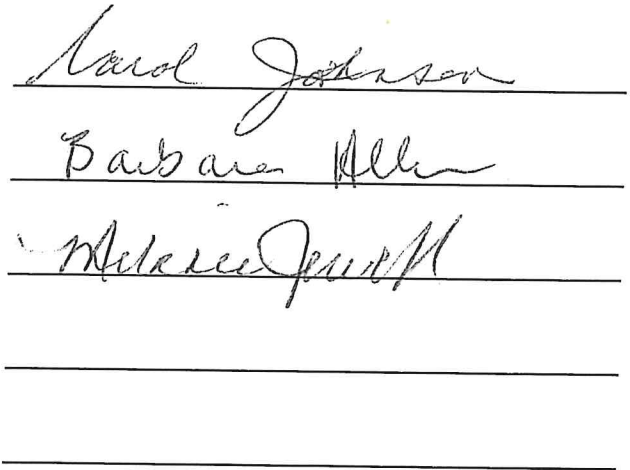 Carol Johnson
Barbara Allen
Melanie Jewell